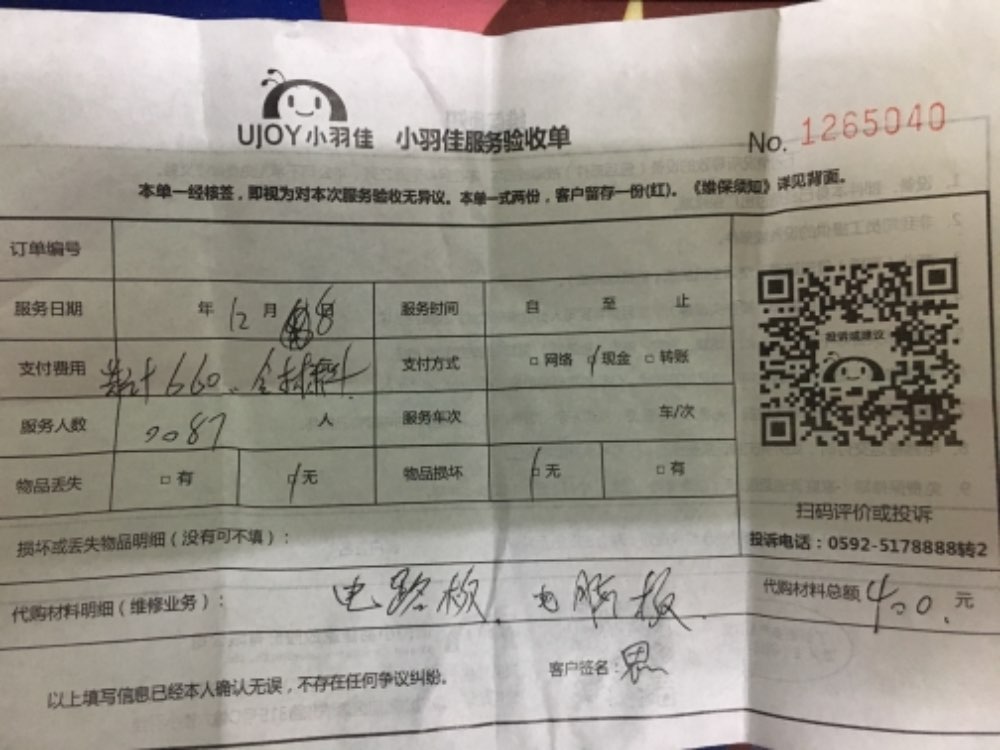 UJOY小羽佳 小羽佳服务验收单
No. 1265040
本单一经核签，即视为对本次服务验收无异议。本单一式两份，客户留存一份(红)。《维保须知》详见背面。
订单编号
服务日期 年 12 月 8日 服务时间 自 至 止
支付费用 660、含材料 支付方式 □ 网络 □ 现金 □ 转账
服务人数 0087 人 服务车次 车/次
物品丢失 □ 有 □ 无 物品损坏 □ 无 □ 有
投诉或建议
扫码评价或投诉
投诉电话：0592-5178888转2
损坏或丢失物品明细（没有可不填）：
代购材料明细（维修业务）： 电路板、电脑板 代购材料总额 400. 元
以上填写信息已经本人确认无误，不存在任何争议纠纷。 客户签名：